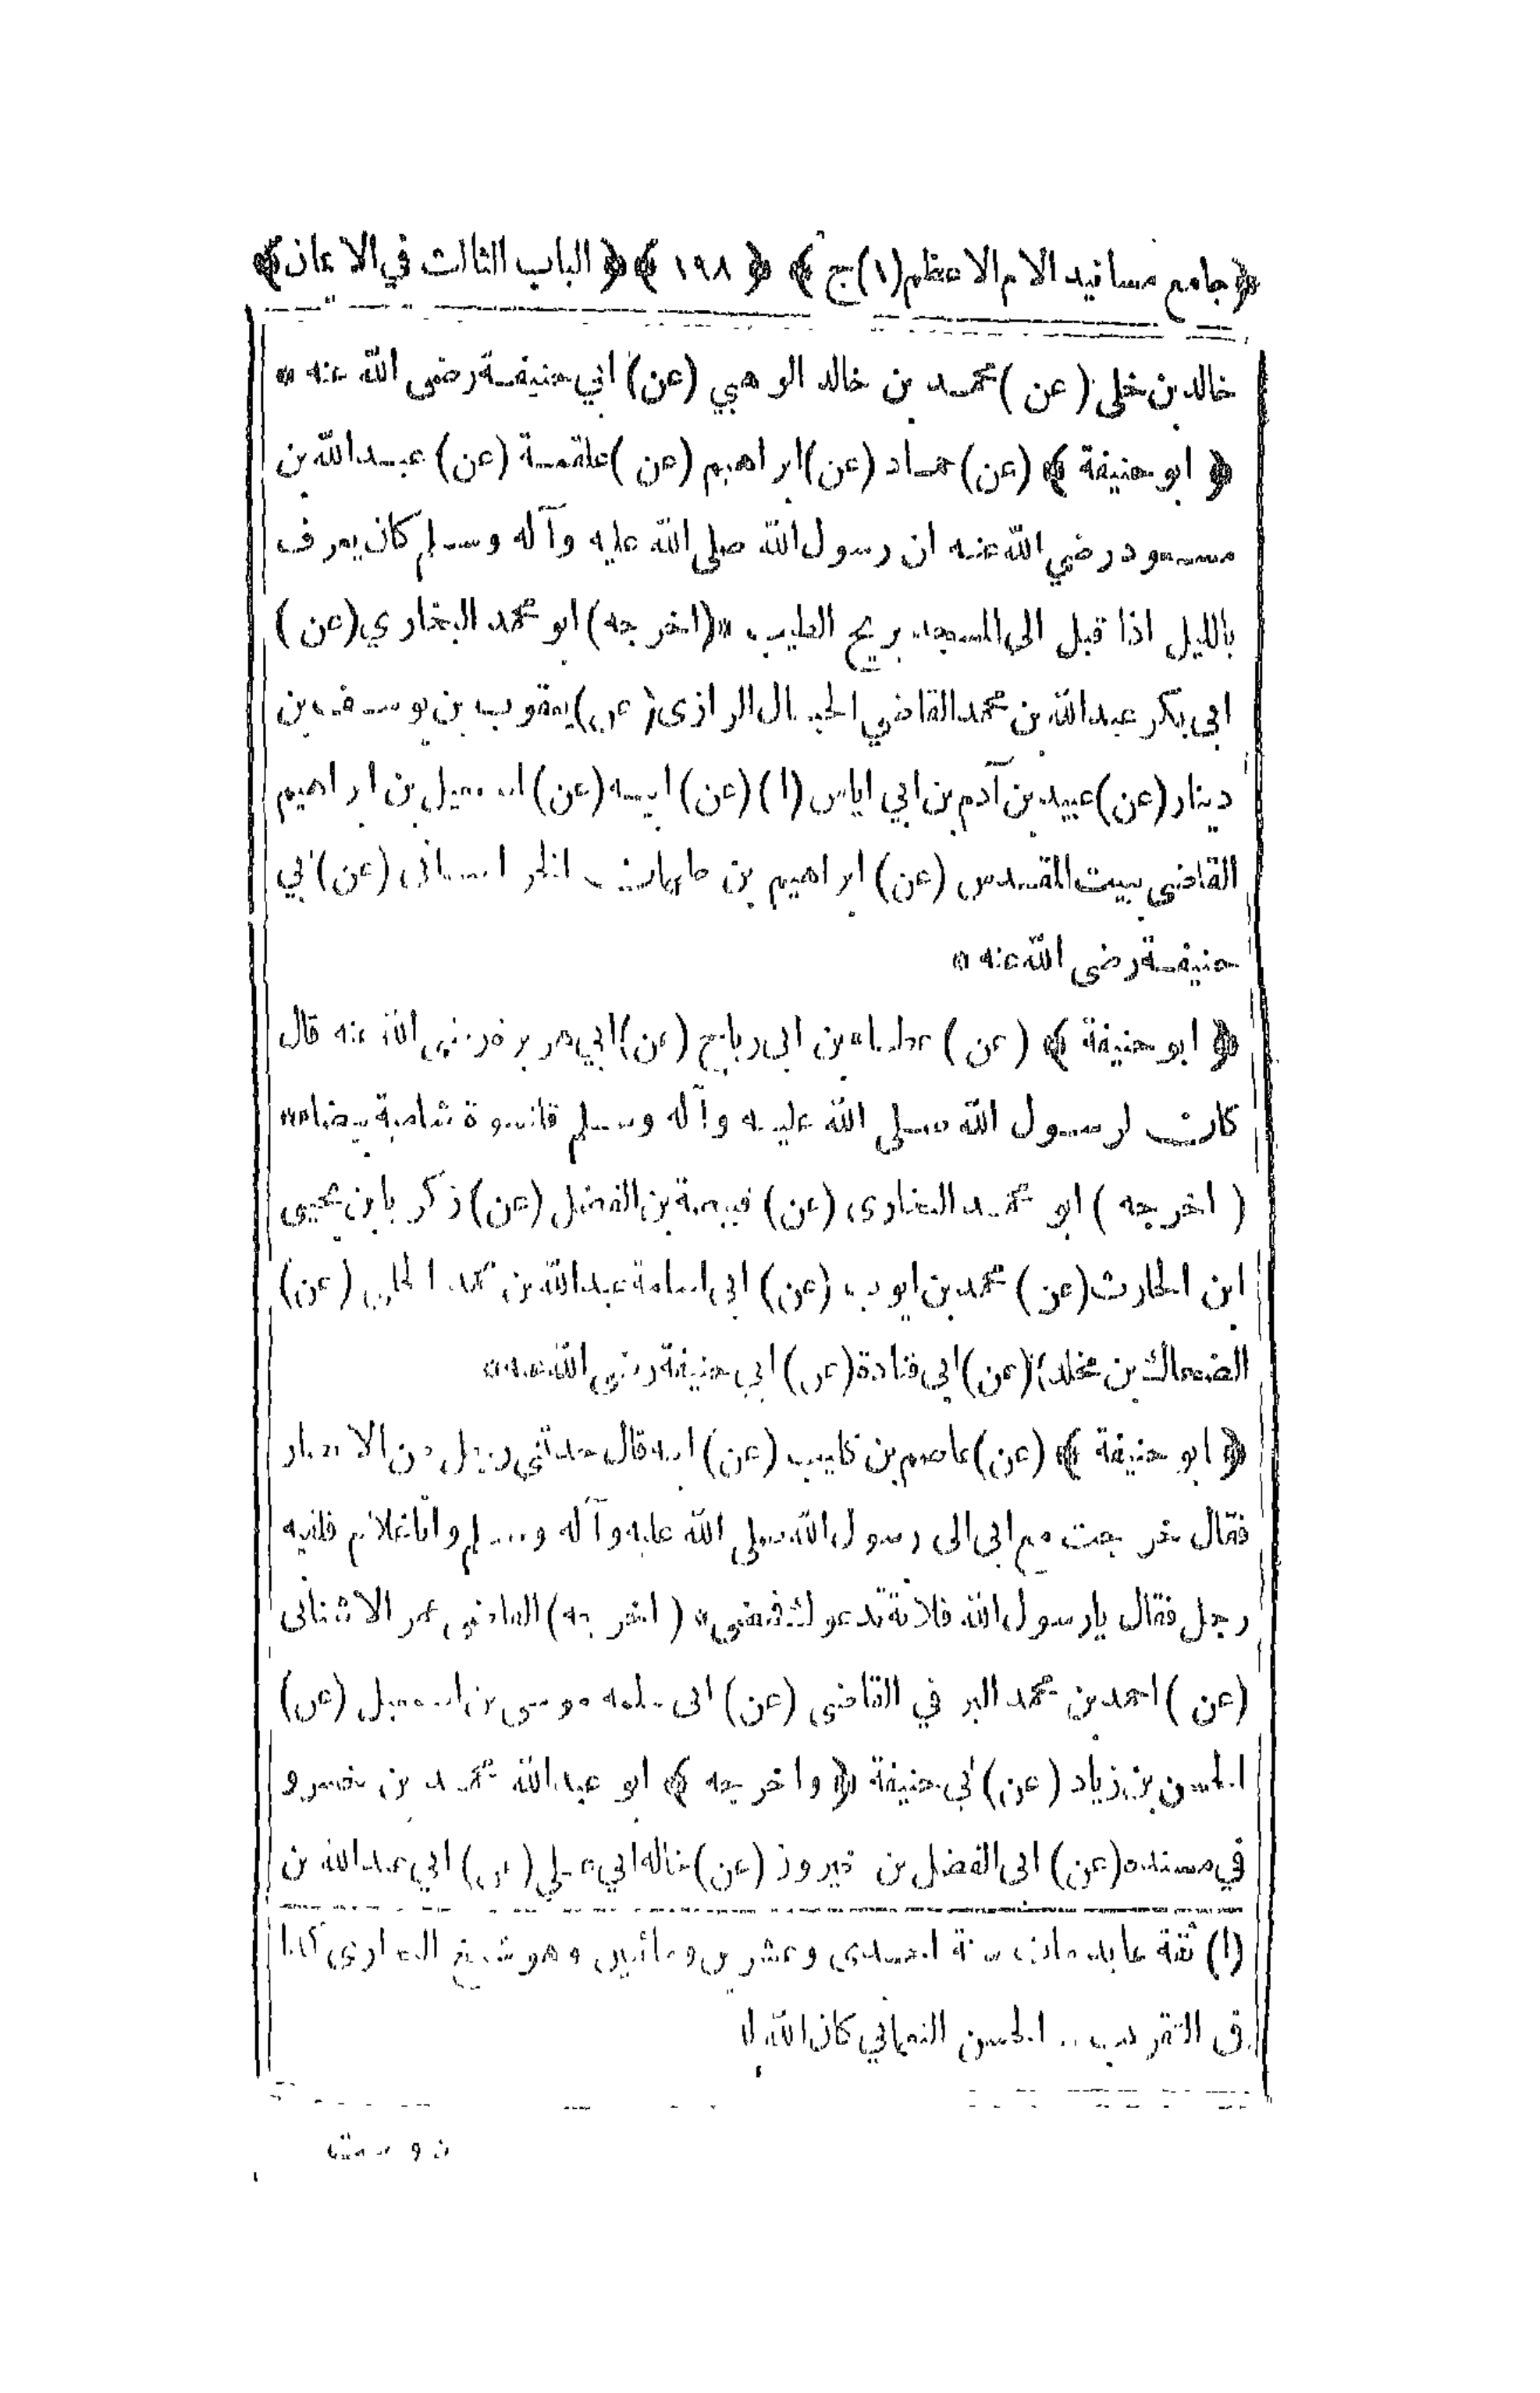 ﴿جامع مسانيد الامام الاعظم(١)ج﴾ ﴿ ١٩٨ ﴾ ﴿ الباب الثالث في الايمان﴾
خالد بن خلي (عن) محمد بن خالد الوهبي (عن) ابي حنيفة رضى الله عنه *
﴿ ابو حنيفة ﴾ (عن) حماد (عن) ابراهيم (عن) علقمة (عن) عبد الله بن
مسعود رضي الله عنه ان رسول الله صلى الله عليه وآله وسلم كان يعرف
بالليل اذا قبل الى المسجد بريح الطيب *(اخرجه) ابو محمد البخاري (عن)
ابى بكر عبد الله بن محمد القاضي الحبال الرازى (عن) يعقوب بن يوسف بن
دينار (عن) عبيد بن آدم بن ابي اياس (١) (عن) ابيه (عن) اسمعيل بن ابراهيم
القاضى ببيت المقدس (عن) ابراهيم بن طهمان الخراسانى (عن) ابي
حنيفة رضى الله عنه *
﴿ ابو حنيفة ﴾ (عن) عطاء بن ابى رباح (عن) ابي هريرة رضى الله عنه قال
كانت لرسول الله صلى الله عليه وآله وسلم قلنسوة شامية بيضاء *
( اخرجه ) ابو محمد البخارى (عن) قبيصة بن الفضل (عن) زكريا بن يحيى
ابن الحارث (عن) محمد بن ايوب (عن) ابى اسامة عبد الله بن محمد الحلبي (عن)
الضحاك بن مخلد (عن) ابى قتادة (عن) ابي حنيفة رضى الله عنه *
﴿ ابو حنيفة ﴾ (عن) عاصم بن كليب (عن) ابيه قال حدثني رجل من الانصار
فقال خرجت مع ابى الى رسول الله صلى الله عليه وآله وسلم وانا غلام فلقيه
رجل فقال يارسول الله فلانة تدعوك فمضى * ( اخرجه) القاضى عمر الاشنانى
(عن) احمد بن محمد البرفي القاضى (عن) ابى سلمه موسى بن اسمعيل (عن)
الحسن بن زياد (عن) ابي حنيفة ﴿ واخرجه ﴾ ابو عبد الله محمد بن خسرو
في مسنده (عن) ابى الفضل بن خيرون (عن) خاله ابي علي (عن) ابي عبد الله بن
(١) ثقة عابد مات سنة احدى وعشرين ومائتين وهو شيخ البخارى كذا
فى التقريب .. الحسن النعماني كان الله لا